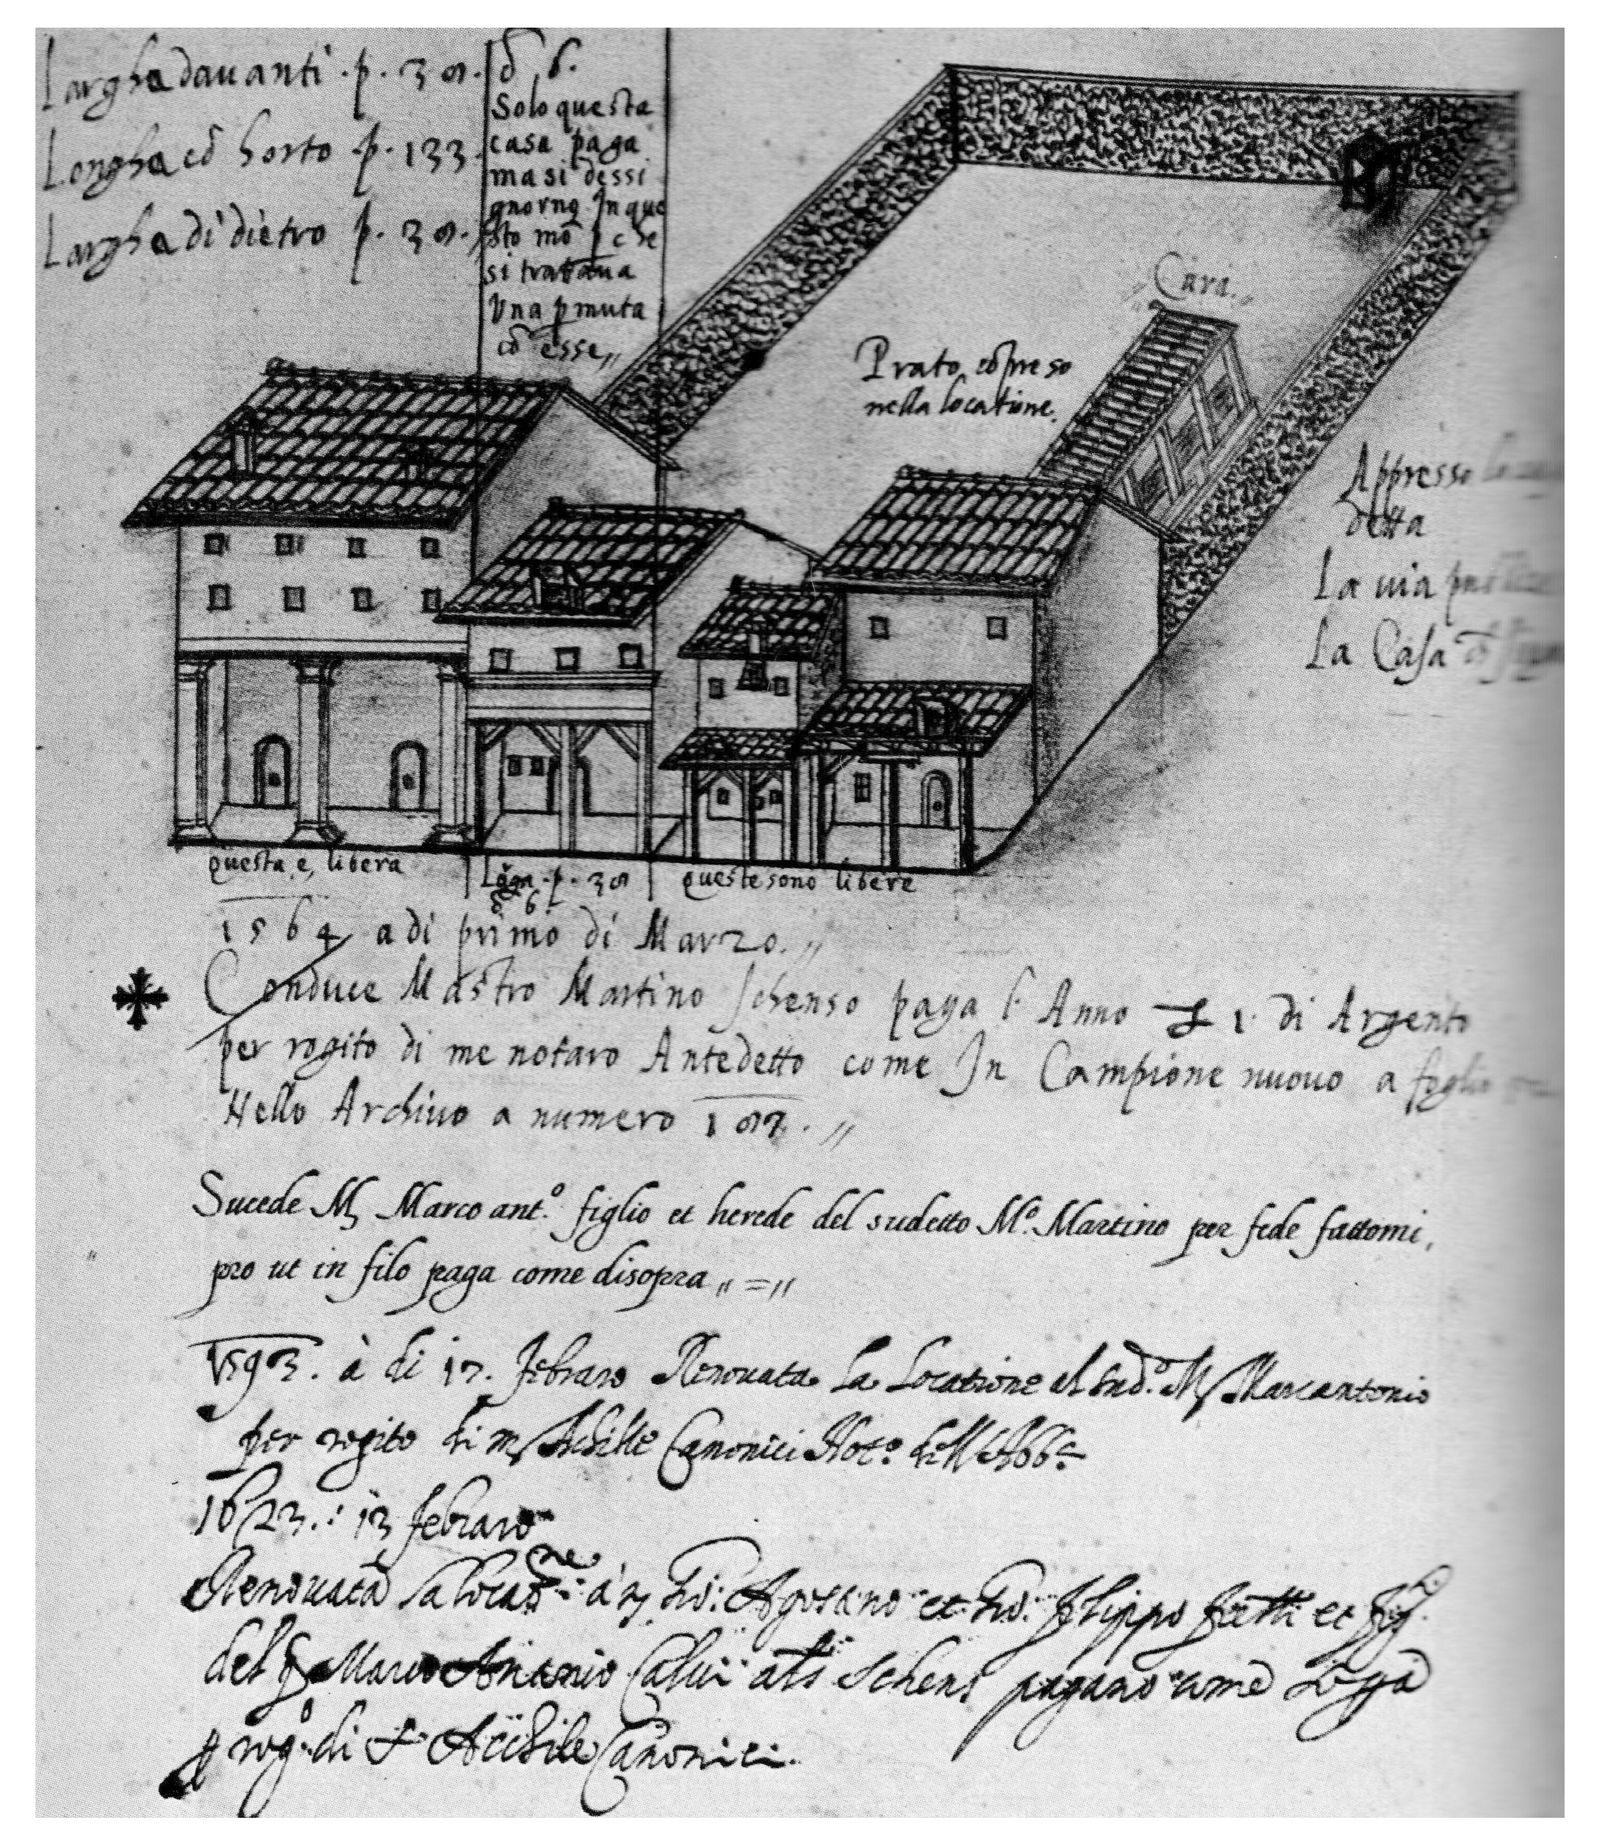 Largha davanti .p. 39.
Longha cõ horto .p. 133.
Largha di dietro p. 39.
õ .6.
Solo questa
casa paga
ma si dessi
gnorno In que
sto mõ p che
si tratava
Una pmuta
cõ esse,,
Cava.
Prato cõpreso
nella locatione.
Appresso
detta
La via
La Casa
questa, e, libera
p. 39
6.
queste sono libere
1564 a di primo di Marzo.,,
Conduce Mastro Martino Schenso paga l'Anno 1. di Argento
per rogito di me notaro Antedetto come In Campione nuovo a foglio
Nello Archivo a numero
Sucede M Marco ant.º figlio et herede del sudetto Mº. Martino per fede fattomi,
pro ut in filo paga come disopra ,,=,,
1593. à di 17. Febraro Renovata La Locatione al sud.º M Marcantonio
per rogito di m Achille Canonici Not.º dell Abb.ª
1623.: 13 febraro
Renovata la locat.ne à Agostino et Filippo fratelli et
del Marco Antonio Calvi als Schensi pagano come
p rog.º di Achile Canonici.